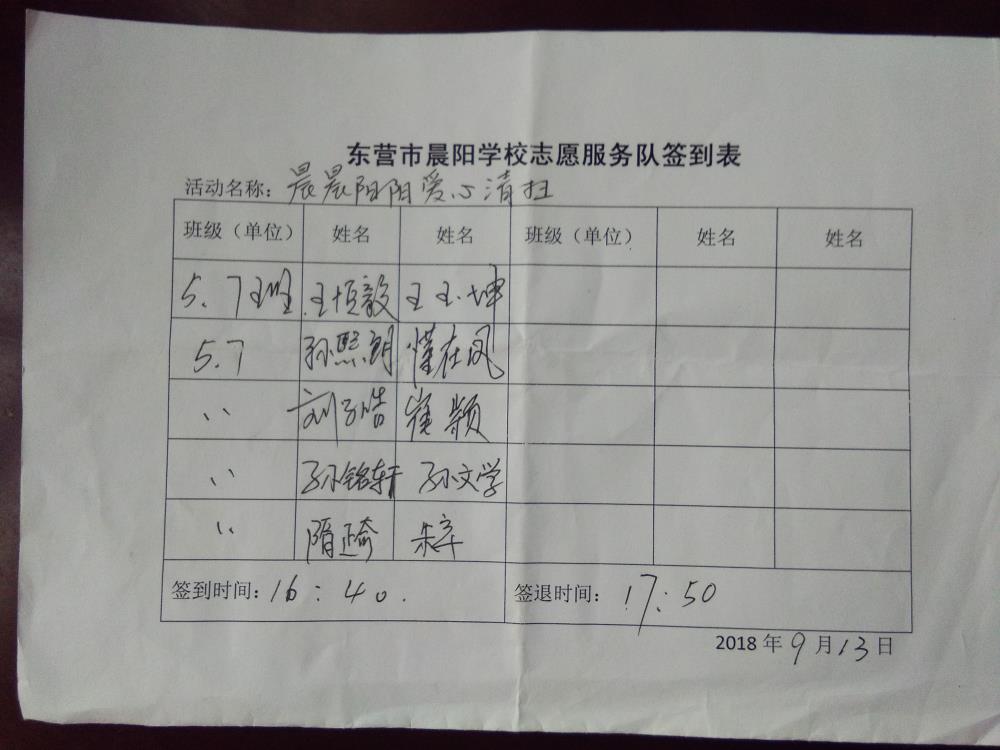 东营市晨阳学校志愿服务队签到表
活动名称：晨晨阳阳爱心清扫
班级（单位） 姓名 姓名 班级（单位） 姓名 姓名
5.7班 王恒毅 王玉坤
5.7 孙熙朗 在凤
〃 刘子皓 崔颖
〃 孙铭轩 孙文学
〃 隋 朱
签到时间：16：40. 签退时间：17：50
2018年9月13日